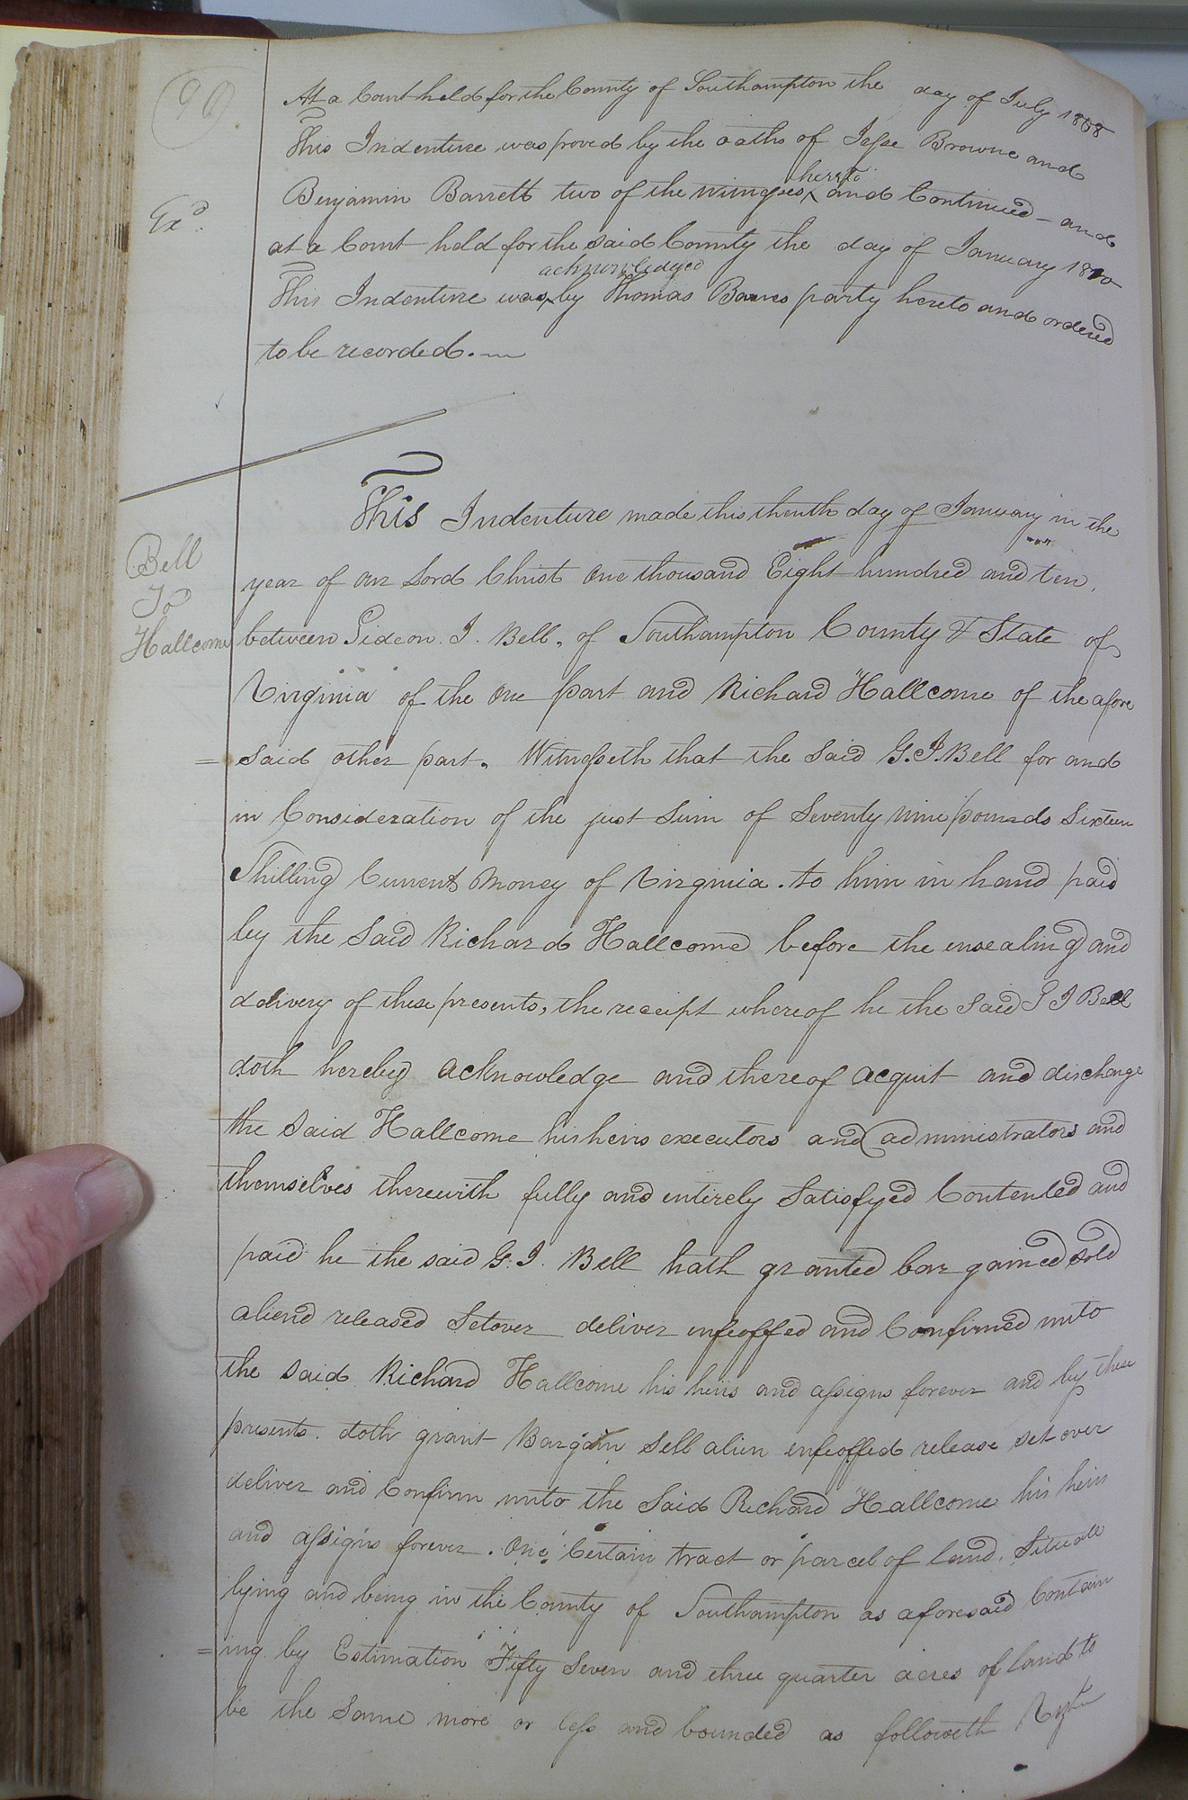 At a Court held for the County of Southampton the day of July 1808
This Indenture was proved by the oaths of Jesse Browne and
hereto
Benjamin Barrett two of the witnesses ^ and Continued - and
Exd.
at a Court held for the said County the day of January 1810
acknowledged
This Indenture was ^ by Thomas Barnes party hereto and ordered
to be recorded.
This Indenture made this thenth day of January in the
Bell
To
Hallcome
year of our Lord Christ One thousand Eight hundred and ten,
between Gideon J. Bell, of Southampton County & State of
Virginia of the One part and Richard Hallcome of the afore
= said other part. Witnesseth that the Said G. J. Bell for and
in Consideration of the just Sum of Seventy nine pounds Sixteen
Shilling Current Money of Virginia. to him in hand paid
by the Said Richard Hallcome before the ensealing and
delivery of these presents, the receipt whereof he the Said G J Bell
doth hereby acknowledge and thereof acquit and discharge
the Said Hallcome his heirs executors and administrators and
themselves therewith fully and entirely Satisfyed Contented and
paid he the said G. J. Bell hath granted bargained sold
aliend released Setover deliver enfeoffed and Confirmed unto
the said Richard Hallcome his heirs and assigns forever and by these
presents. doth grant Bargain Sell alien enfeoffed release set over
deliver and Confirm unto the Said Richard Hallcome his heirs
and assigns forever. One Certain tract or parcel of land. Situate
lying and being in the County of Southampton as aforesaid Contain
= ing by Estimation Fifty Seven and three quarter acres of land to
be the Same more or less and bounded as followeth